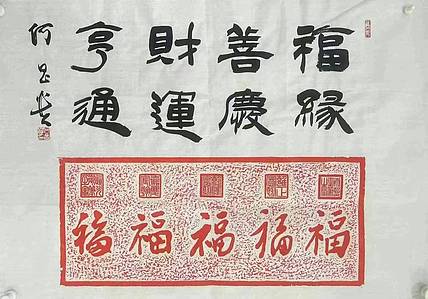 福緣
善慶
財運
亨通
何昌貴
福福福福福